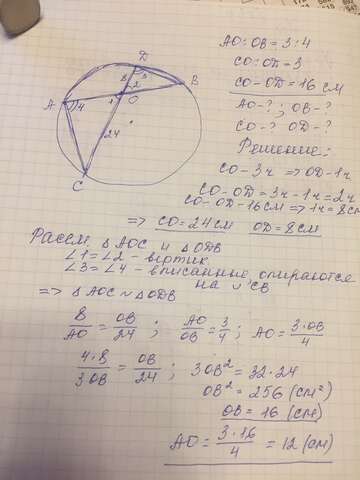 D
8
3
2
B
A
4
1
O
24
C
AO:OB=3:4
CO:OD=3
CO-OD=16 см
AO-? ; OB-?
CO-? OD-?
Решение:
CO-3ч => OD-1ч
CO-OD=3ч-1ч=2ч
CO-OD-16см => 1ч=8см
=> CO=24см OD=8см
Рассм. △AOC и △ODB
∠1=∠2 - вертик
∠3=∠4 - вписанные опираются
на ◡ CB
=> △AOC ∾ △ODB
8/AO = OB/24 ; AO/OB = 3/4 ; AO = 3·OB/4
4·8/3OB = OB/24 ; 3OB² = 32·24
OB² = 256 (см²)
OB = 16 (см)
AO = 3·16/4 = 12 (см)